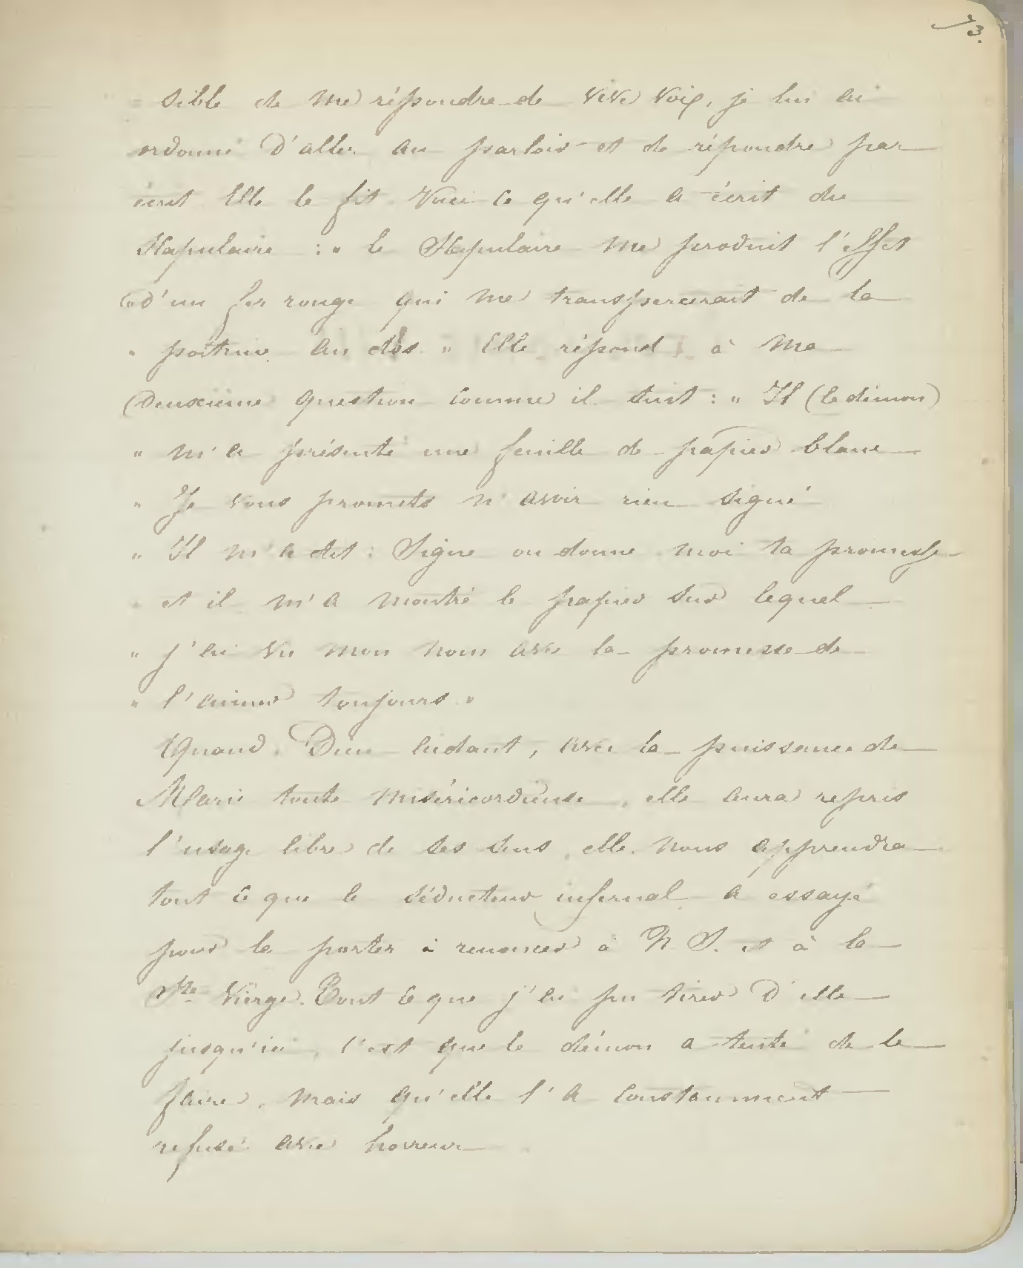 73.
sible de me répondre de vive voix, je lui ai
ordonné d'aller au parloir et de répondre par
écrit Elle le fit. Voici ce qu'elle a écrit du
Skapulaire : " le Skapulaire me produit l'effet
" d'un fer rouge qui me transpercerait de la
" poitrine au dos. " Elle répond à ma
deuxième question comme il suit : " Il (le démon)
" m'a présenté une feuille de papier blanc
" Je vous promets n'avoir rien signé
" Il m'a dit : Signe ou donne moi ta promesse
" et il m'a montré le papier sur lequel
" j'ai vu mon nom avec la promesse de
" l'aimer toujours. "
Quand, Dieu aidant, avec la puissance de
Marie toute miséricordieuse, elle aura repris
l'usage libre de ses sens, elle nous apprendra
tout ce que le séducteur infernal a essayé
pour la porter à renoncer à N S. et à la
Ste Vierge. Tout ce que j'ai pu tirer d'elle
jusqu'ici, c'est que le démon a tenté de le
faire, mais qu'elle l'a constamment
refusé avec horreur